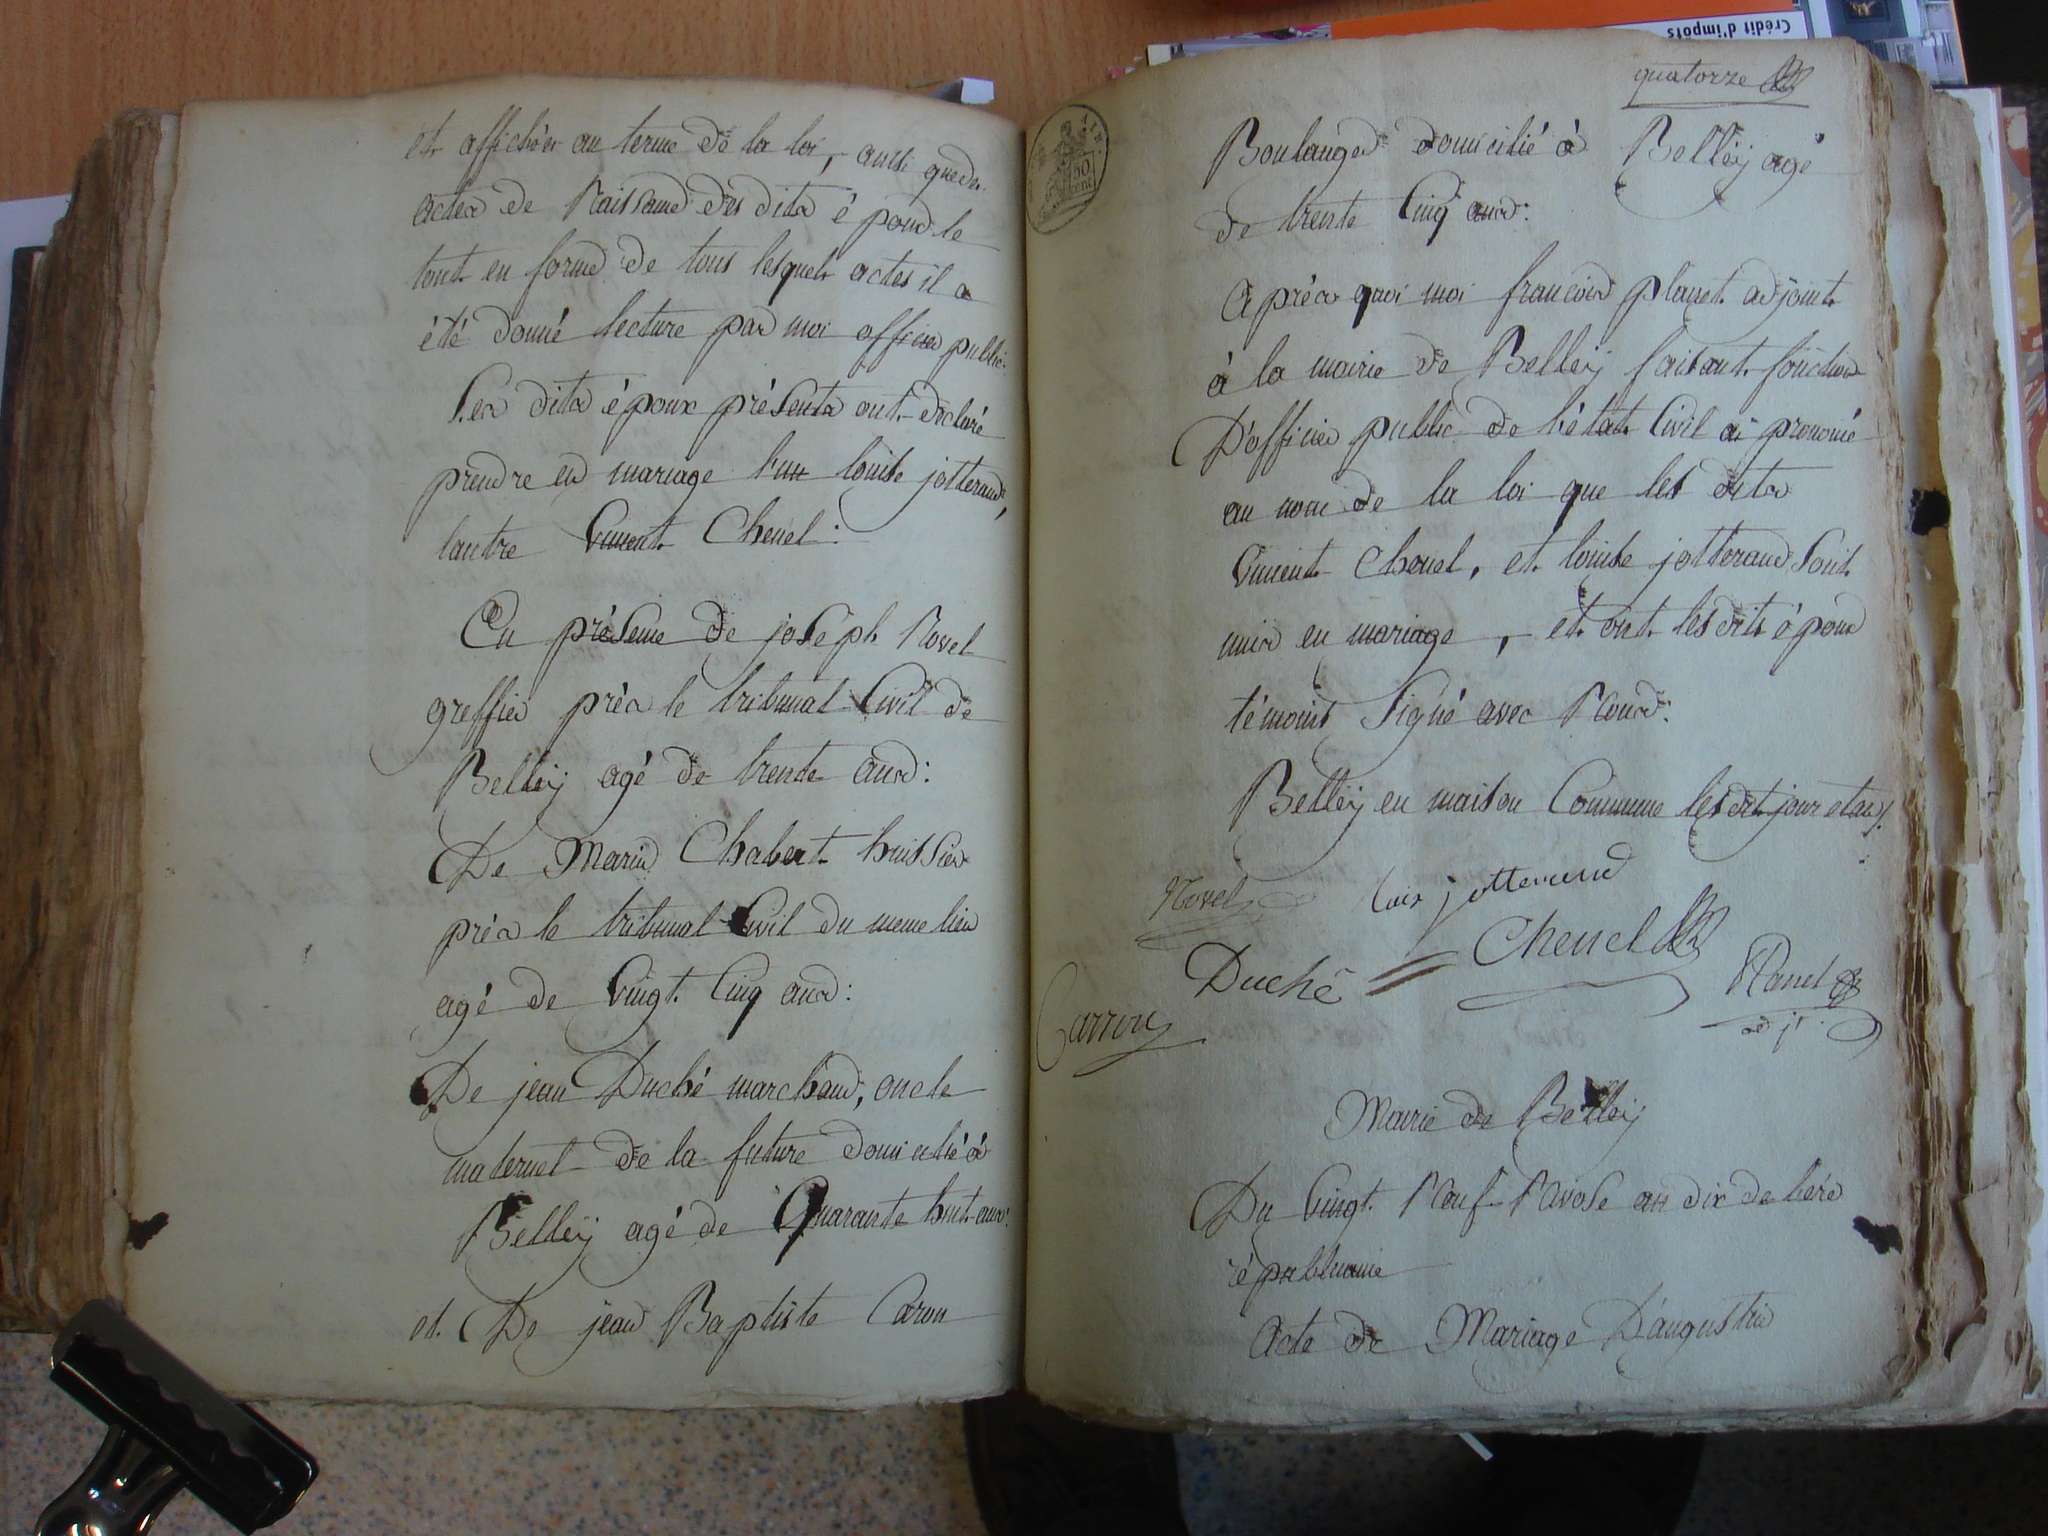 et affichées au terme de la loi, ainsi que des
actes de Naissance des dits époux le
tout en forme de tous lesquels actes il a
été donné lecture par moi officier public
Les dits époux présents ont déclaré
prendre en mariage l'un louise jotterand,
lautre Vincent Chenel :
En présence de joseph Novel
greffier près le tribunal Civil de
Belleÿ agé de trente ans :
De Marin Chabert huissier
près le tribunal Civil du meme lieu
agé de Vingt Cinq ans :
De jean Duché marchand, oncle
maternel de la future domicilié à
Belleÿ agé de Quarante huit ans :
et De jean Baptiste Caron
Crédit d'impôts
quatorze
50
cent
Boulanger domicilié à Belleÿ agé
de trente Cinq ans :
Après quoi moi francois planet adjoint
à la mairie de Belleÿ faisant fonction
D'officier public de l'état Civil ai prononcé
au nom de la loi que les dits
Vincent Chenel, et louise jotterand Sont
unis en mariage, et ont lesdits époux
témoins Signé avec Nous :
Belleÿ en maison Commune lesdit jour et an
Novel louis jotterand
Duché = Chenel Planet
Carron adjt
Mairie de Belleÿ
Du Vingt Neuf Nivose an dix de l'ére
républicaine
Acte de Mariage D'augustin